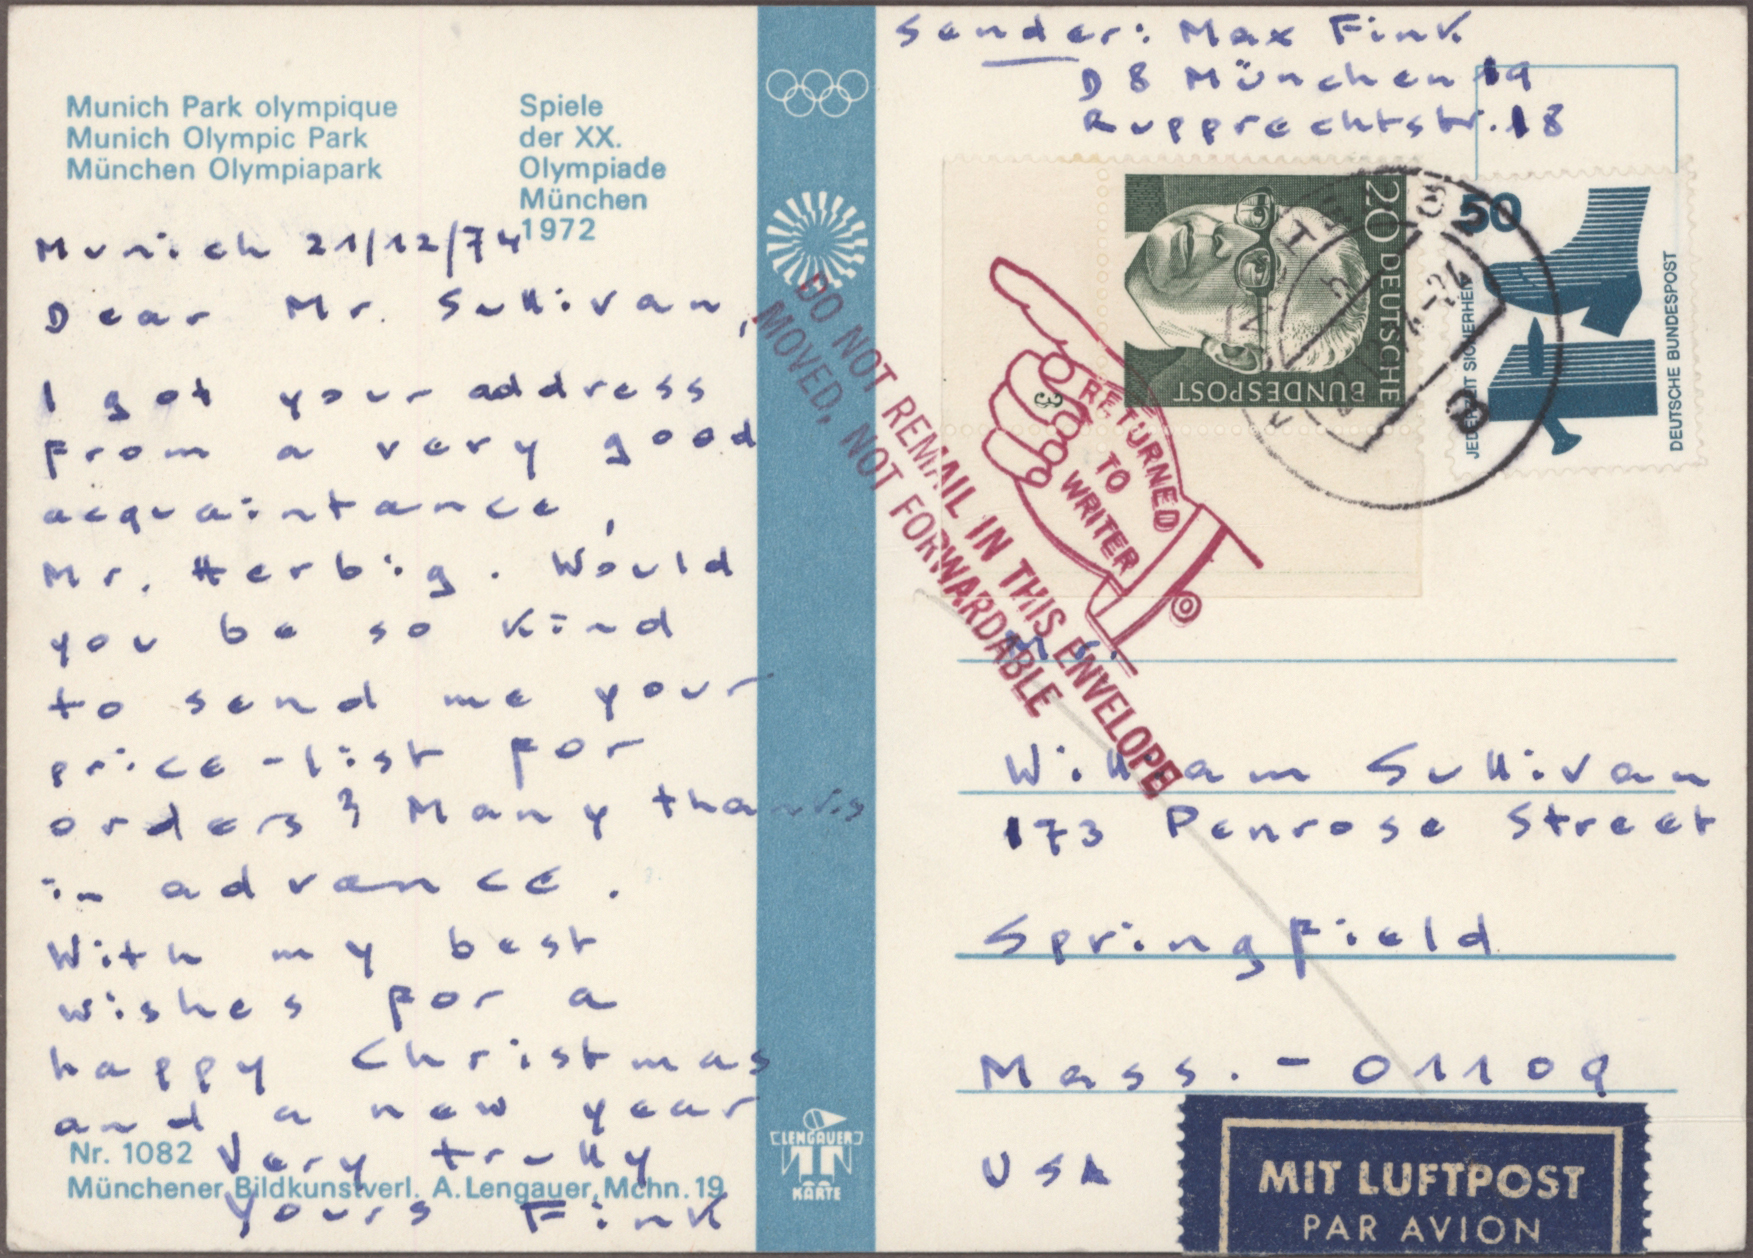 Munich Park olympique
Munich Olympic Park
München Olympiapark
Spiele
der XX.
Olympiade
München
1972
Munich 21/12/74
Dear Mr. Sullivan,
I got your address
from a very good
acquaintance,
Mr. Herbig. Would
you be so kind
to send me your
price-list for
orders? Many thanks
in advance.
With my best
wishes for a
happy Christmas
and a new year
Very trully
Yours Fink
Nr. 1082
Münchener Bildkunstverl. A. Lengauer, Mchn. 19
LENGAUER
KARTE
Sender: Max Fink
D 8 München 19
Rupprechtstr. 18
20 DEUTSCHE
BUNDESPOST
50
JEDERZEIT SICHERHEIT
DEUTSCHE BUNDESPOST
3
8
RETURNED
TO
WRITER
DO NOT REMAIL IN THIS ENVELOPE
MOVED, NOT FORWARDABLE
Mr.
William Sullivan
173 Penrose Street
Springfield
Mass. - 01109
USA
MIT LUFTPOST
PAR AVION